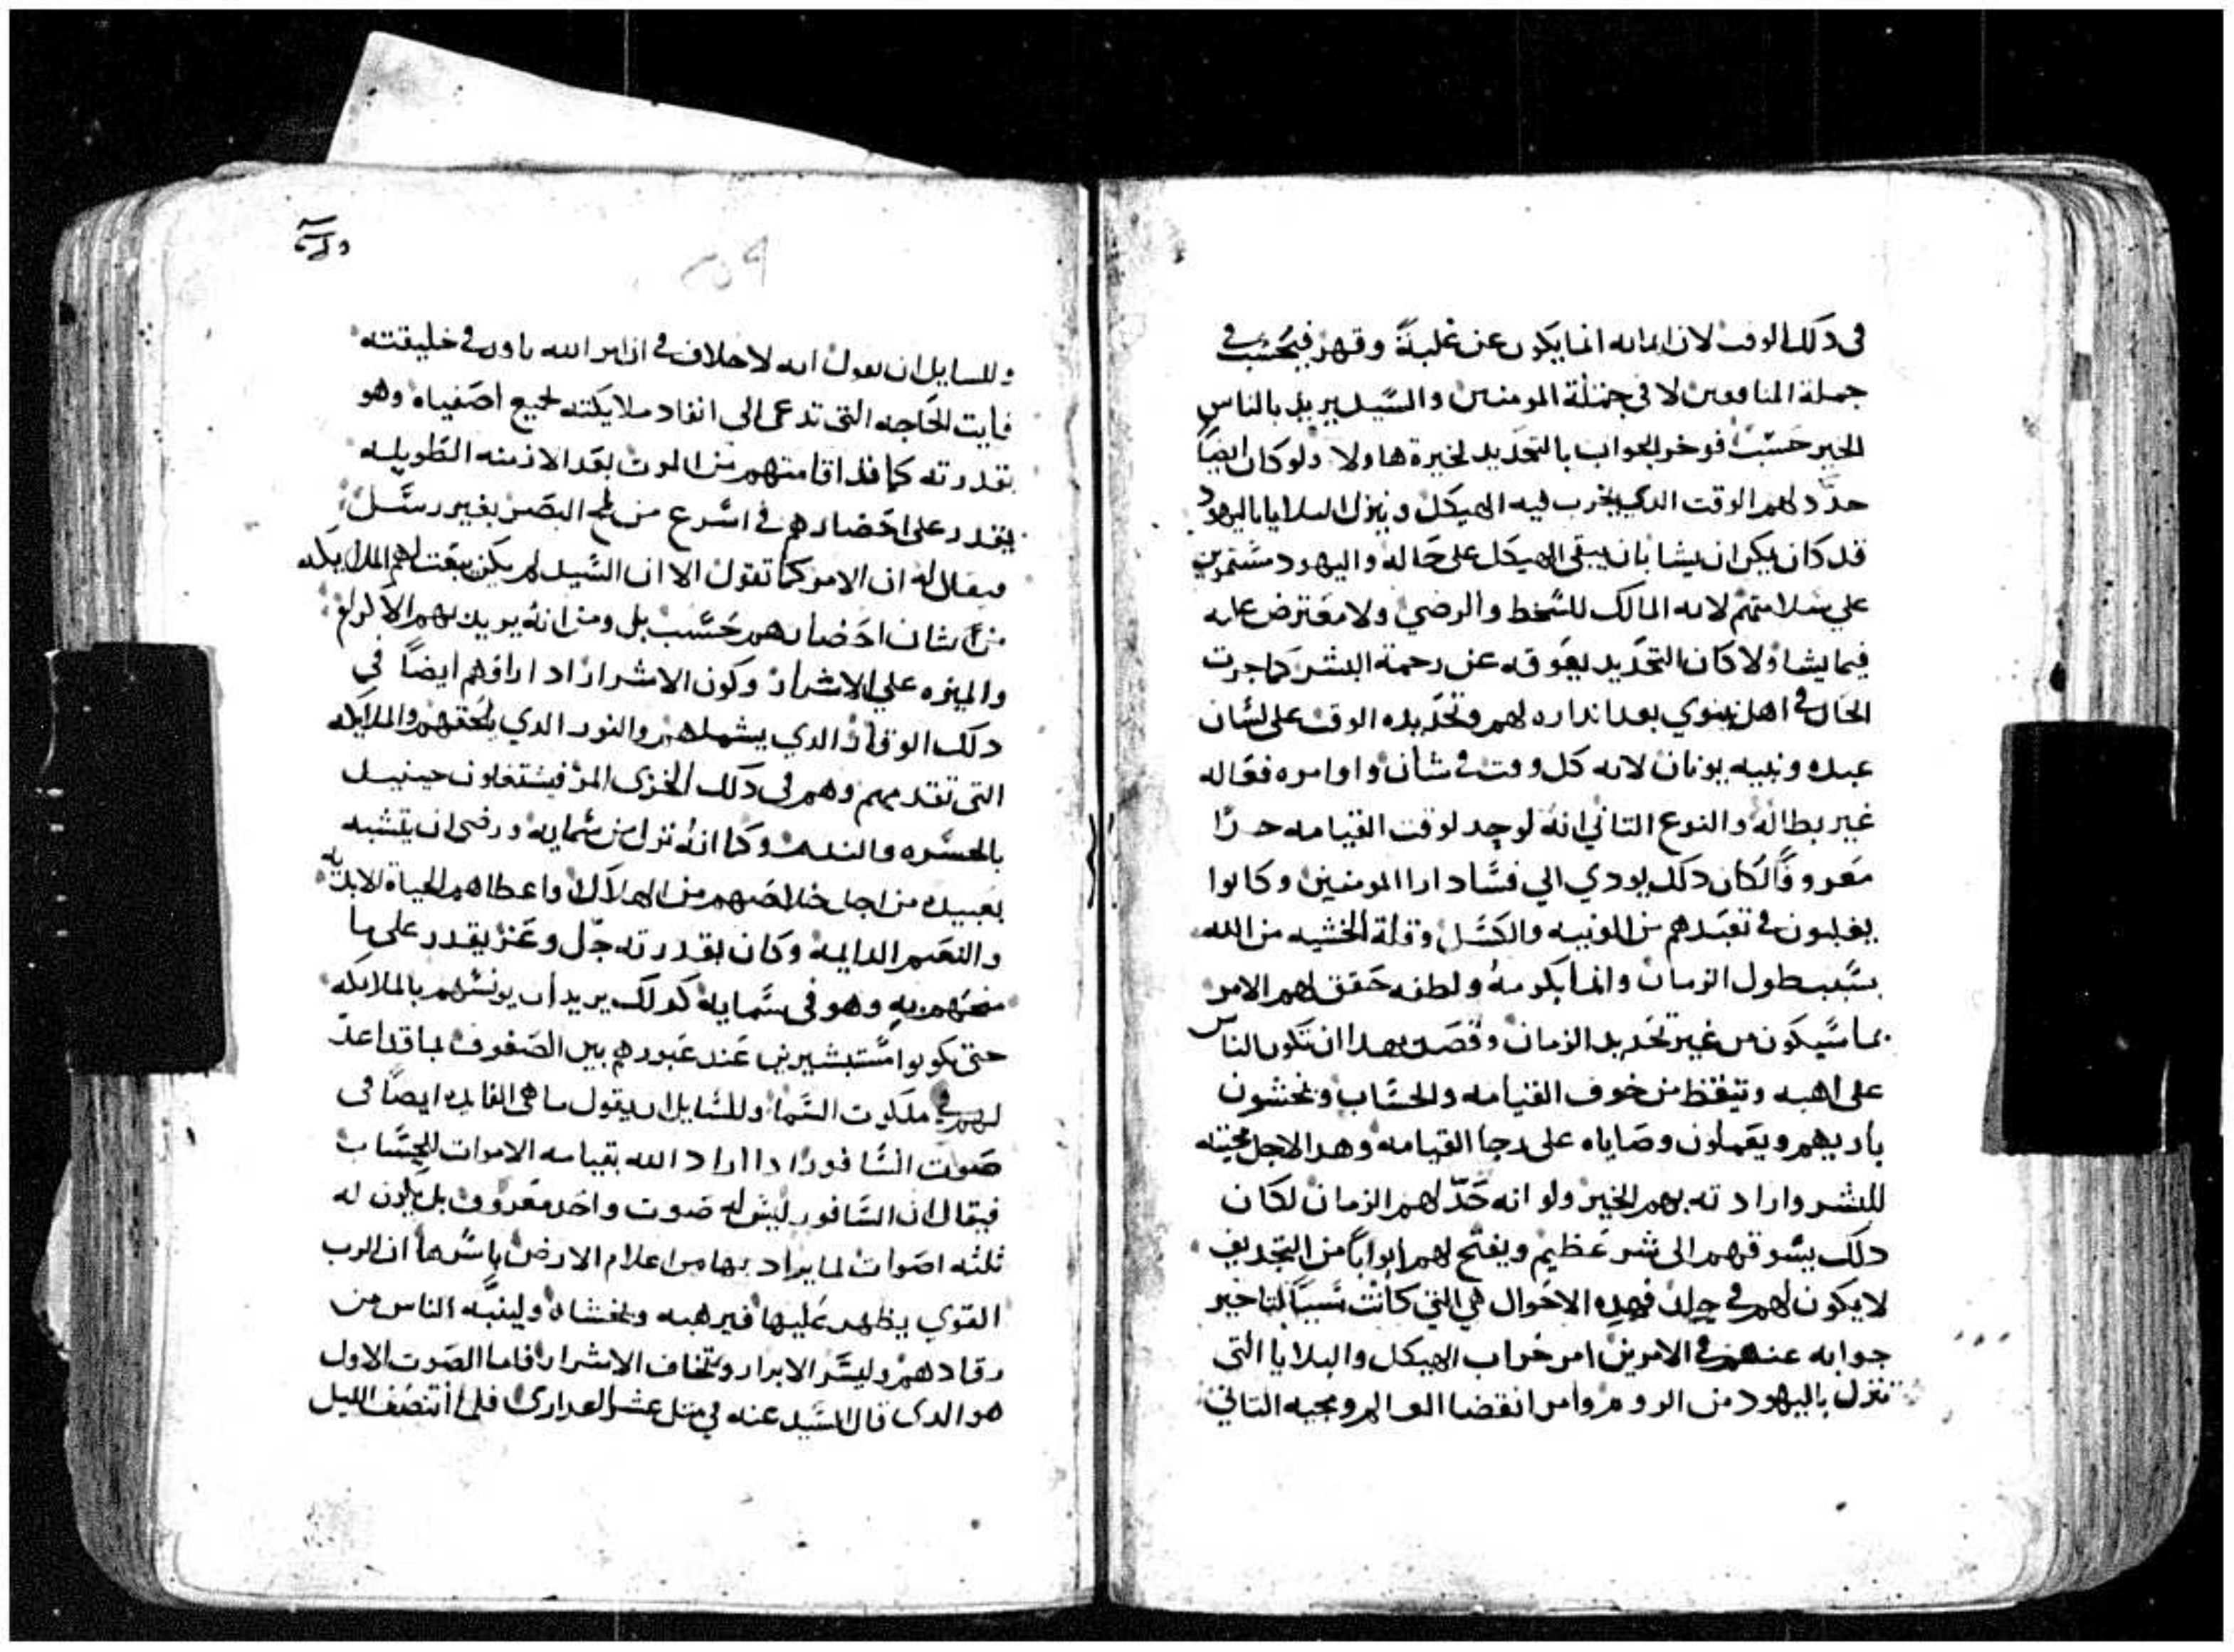 في دلك الوقت لان ايمانه انما يكون عن غلبةً وقهر فيحسب في
جملة المنافقين لا في جملة المومنين والسيد يريد بالناس
الخير حسب فوخر الجواب بالتحديد لخيرة هاولا ولو كان ايضاً
حدّد لهم الوقت الدي يخرب فيه الهيكل وينزل البلايا باليهود
قد كان يمكن ان يشا بان يبقى الهيكل على حاله واليهود مستمرين
علي سلامتهم لانه المالك للسخط والرضي ولا معترض عليه
فيما يشا ولا كان التحديد يعوقه عن رحمة البشر كما جرت
الحال في اهل نينوي بعد انداره لهم وتحديده الوقت على لسان
عبده ونبيه يونان لانه كل وقت في شان واوامره فعاله
غير بطاله والنوع التاني انه لو حد لوقت القيامه حدًا
معروفًا لكان دلك يودي الي فساد ارا المومنين وكانوا
يغلبون في تعبدهم من الونيه والكسل وقلة الخشيه من الله
بسبب طول الزمان وانما بكرمهُ ولطفه حقق لهم الامر
بما سيكون من غير تحديد الزمان وقصد بهدا ان تكون الناس
على اهبه وتيقظ من خوف القيامه والحساب ويخشون
باريهم ويعملون وصاياه على رجا القيامه وهدا لاجل محبته
للبشر وارادته بهم الخير ولو انه حدّ لهم الزمان لكان
دلك يسوقهم الى شر عظيم ويفتح لهم ابواباً من التجديف
لا يكون لهم في فهده الاحوال هي التي كانت سبباً لتاخير
جوابه عنهم في الامرين امر خراب الهيكل والبلايا التى
تنزل باليهود من الروم وامر انقضا العالم ومجيه التاني
٢٥٩
وللسايل ان يقول انه لا خلاف في ان امر الله في خليقته
فايت الحاجه التى تدعى الى انفاد ملايكته لجميع اصفياه وهو
بقدرته كما قد اقامتهم من الموت بعد الازمنه الطويله
يقدر على احضارهم في اسرع من لمح البصر بغير رسل
فيقال له ان الامر كما تقول الا ان السيد لم يكن يبعت لهم الملايكه
من شان احضارهم حسب بل ومن انه يريد بهم الاكرام
والميزه على الاشرار وكون الاشرار اد اراوهم ايضاً في
دلك الوقار الدي يشملهم والنور الدي يلحقهم والملايكه
التى تقدمهم وهم في دلك الخزى المر فيشتعلون حينيد
بالحسره والندم وكما انه نزل من سمايه ورضى ان يتشبه
بعبيده من اجل خلاصهم من الهلاك واعطاهم الحياة الابديه
والنعيم الدايمه وكان بقدرته جلّ وعز يقدر على ما
منحهم به وهو في سمايه كدلك يريد ان يونسهم بالملايكه
حتى يكونوا مستبشرين عند عبورهم بين الصفوف لما قد اعدّ
لهم في ملكوت السما وللسايل ان يقول ما هي الفايده ايضاً في
صوت السافور ادا اراد الله بقيامه الاموات للحساب
فيقال ان السافور ليس له صوت واحد معروف بل يكون له
ثلثه اصوات لما يراد بها من اعلام الارض باسرها ان الرب
القوي يظهر عليها فيرهبه وتخشاه ولينبّه الناس من
رقادهم وليسّر الابرار وتخاف الاشرار فاما الصوت الاول
هو الدى قال السيد عنه في متل عشر العدارى فلما انتصف الليل